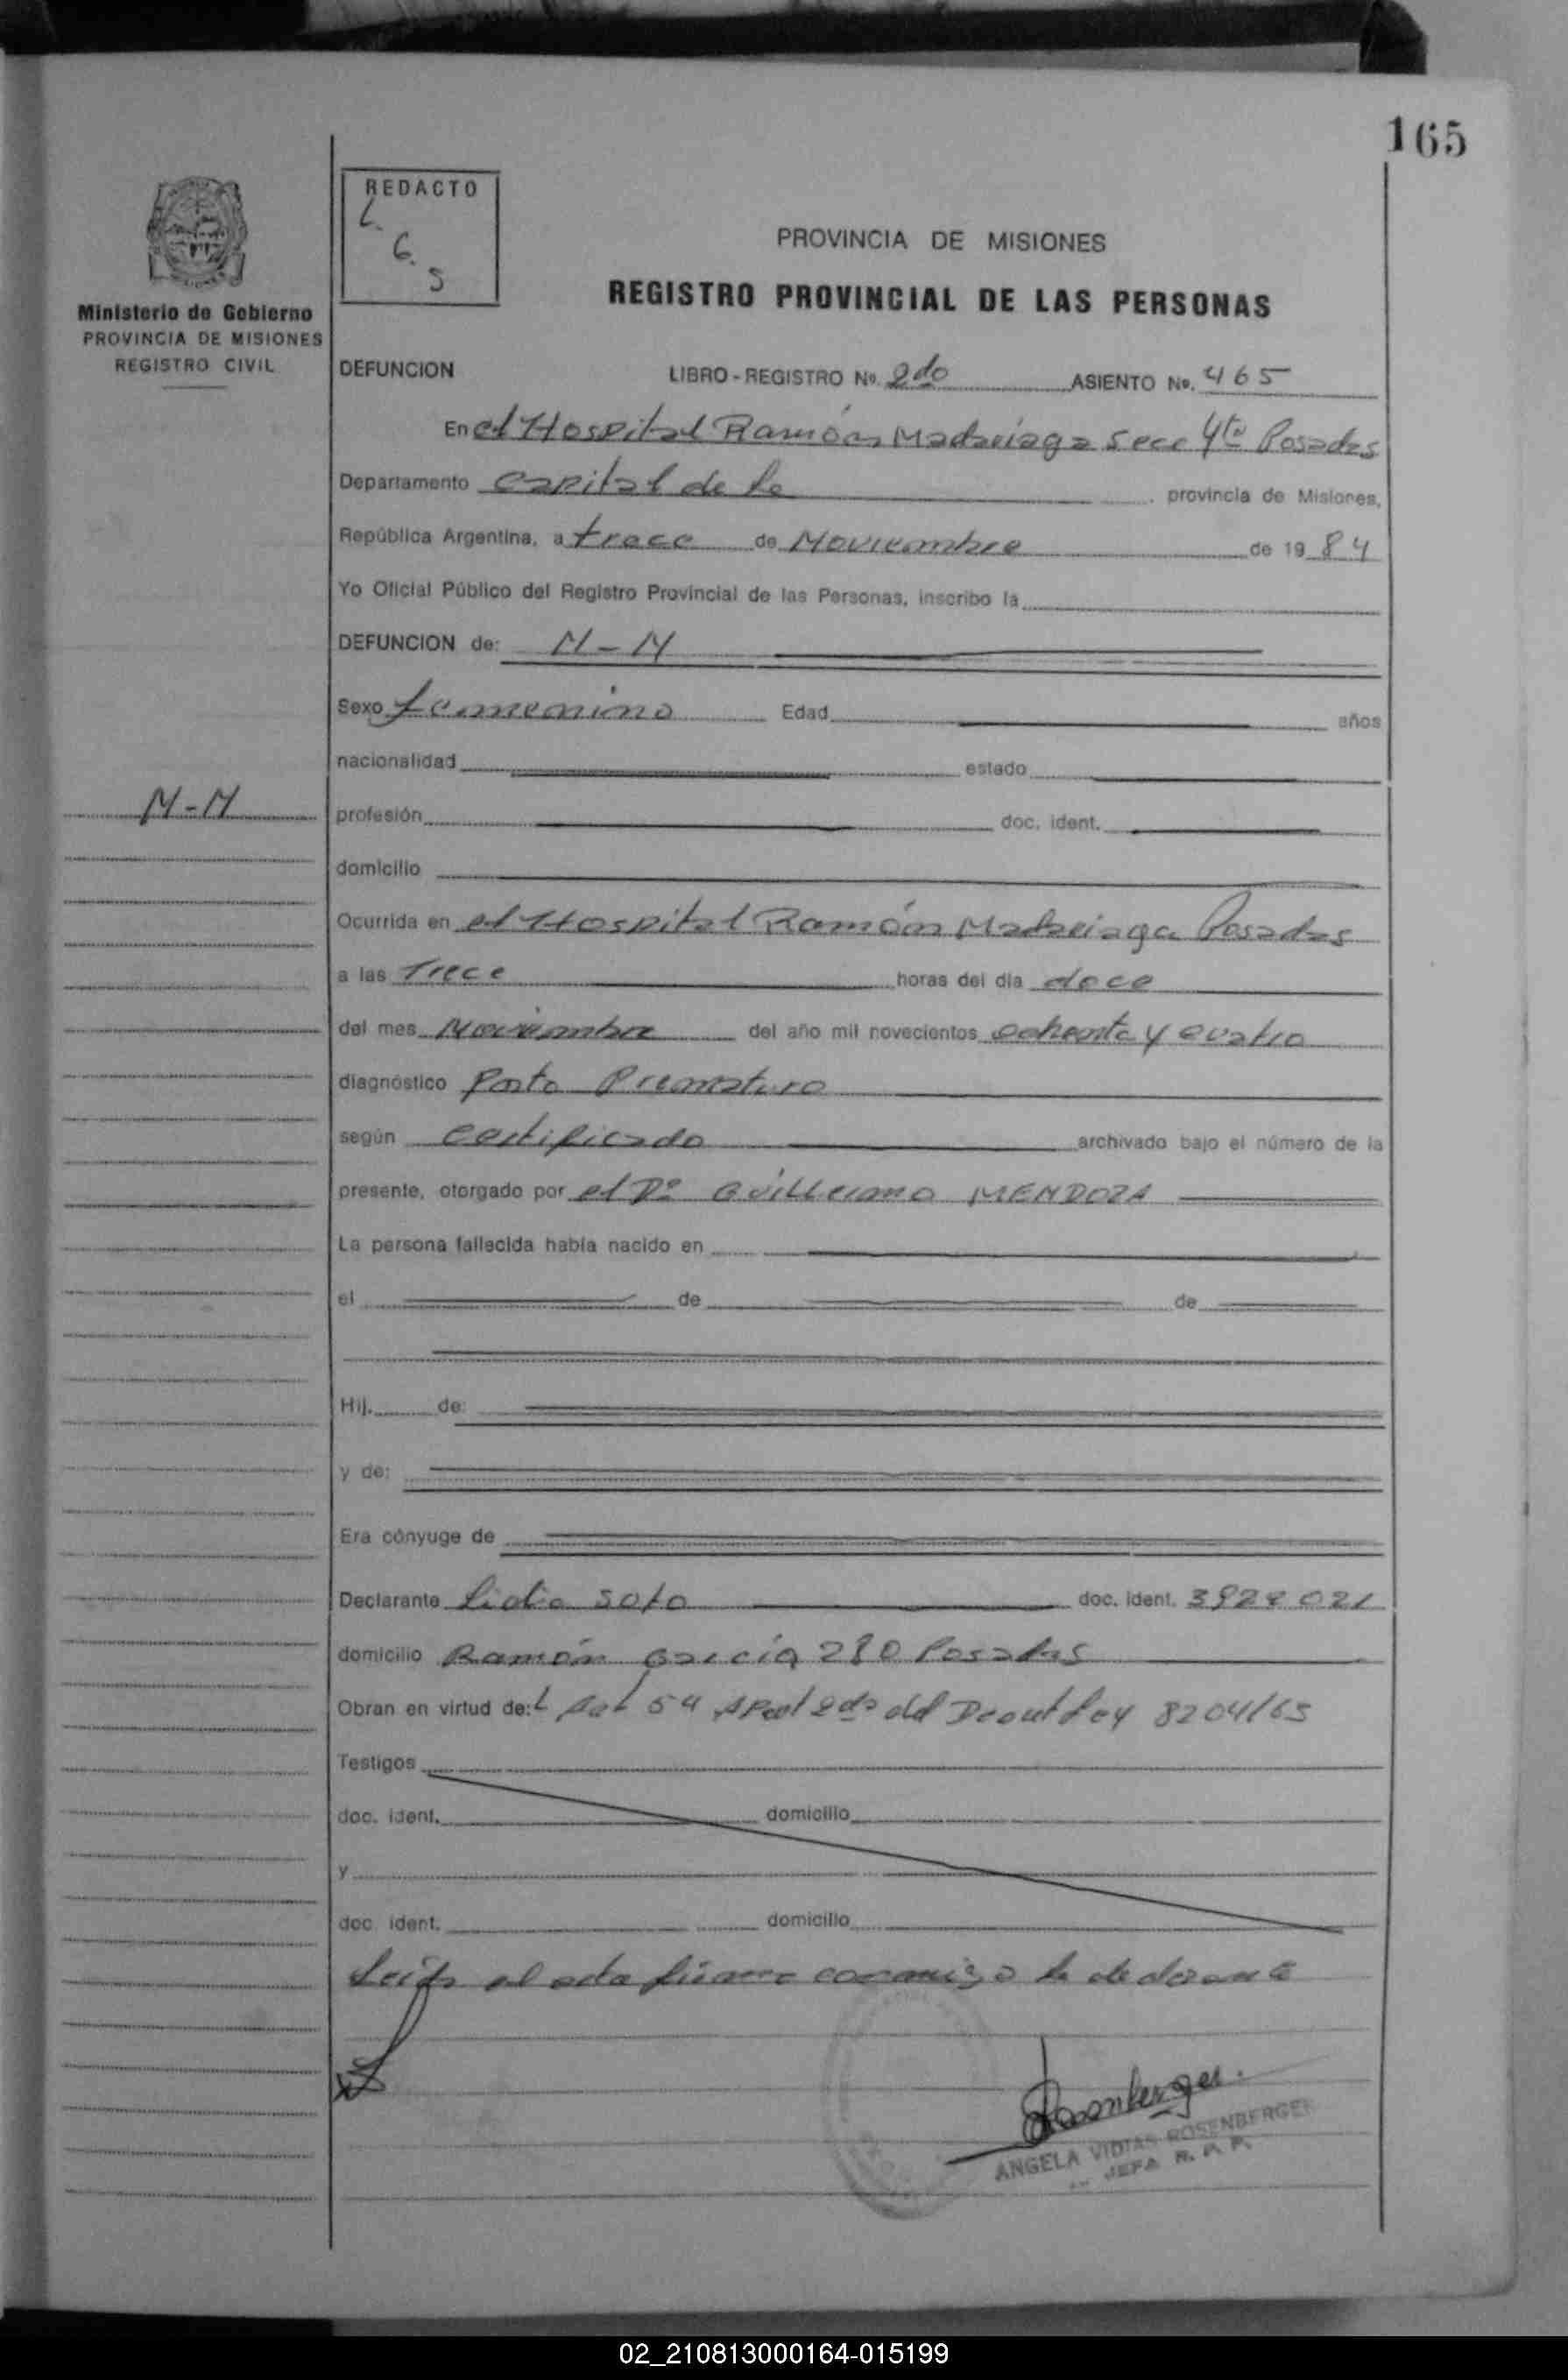 165
REDACTO
L.
G.
S
Ministerio de Gobierno
PROVINCIA DE MISIONES
REGISTRO CIVIL
PROVINCIA DE MISIONES
REGISTRO PROVINCIAL DE LAS PERSONAS
DEFUNCION LIBRO-REGISTRO No. 2do ASIENTO No. 465
En el Hospital Ramón Madariaga Secc 4ta Posadas
Departamento Capital de la provincia de Misiones,
República Argentina, a trece de Noviembre de 1984
Yo Oficial Público del Registro Provincial de las Personas, inscribo la
DEFUNCION de: N-N
Sexo femenino Edad años
nacionalidad estado
N-N
profesión doc. ident.
domicilio
Ocurrida en el Hospital Ramón Madariaga Posadas
a las Trece horas del día doce
del mes Noviembre del año mil novecientos ochenta y cuatro
diagnóstico Parto Prematuro
según certificado archivado bajo el número de la
presente, otorgado por el Dr Guillermo MENDOZA
La persona fallecida había nacido en
el de de
Hij. de:
y de:
Era cónyuge de
Declarante Lidia Soto doc. ident. 3922021
domicilio Ramón García 280 Posadas
Obran en virtud de: L Art 54 Apart 2do del Decret Ley 8204/63
Testigos
doc. ident. domicilio
y
doc. ident. domicilio
Leída el acta firma conmigo la declarante
Rosenberger.
ANGELA VIDIAS ROSENBERGER
JEFA R. P. P.
02_210813000164-015199